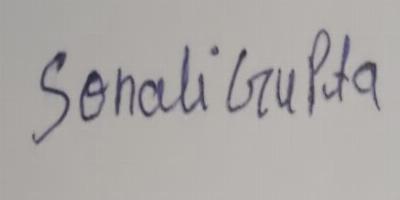 Sonali Gupta